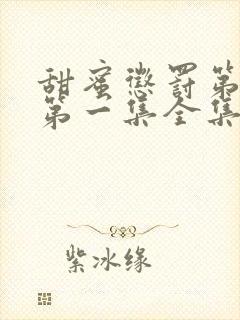 甜蜜惩罚第
第一集全集
紫冰缘